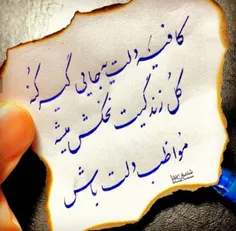 کافیه دلت یه جایی گیر کنه
کل زندگیت نخکش میشه
مواظب دلت باش